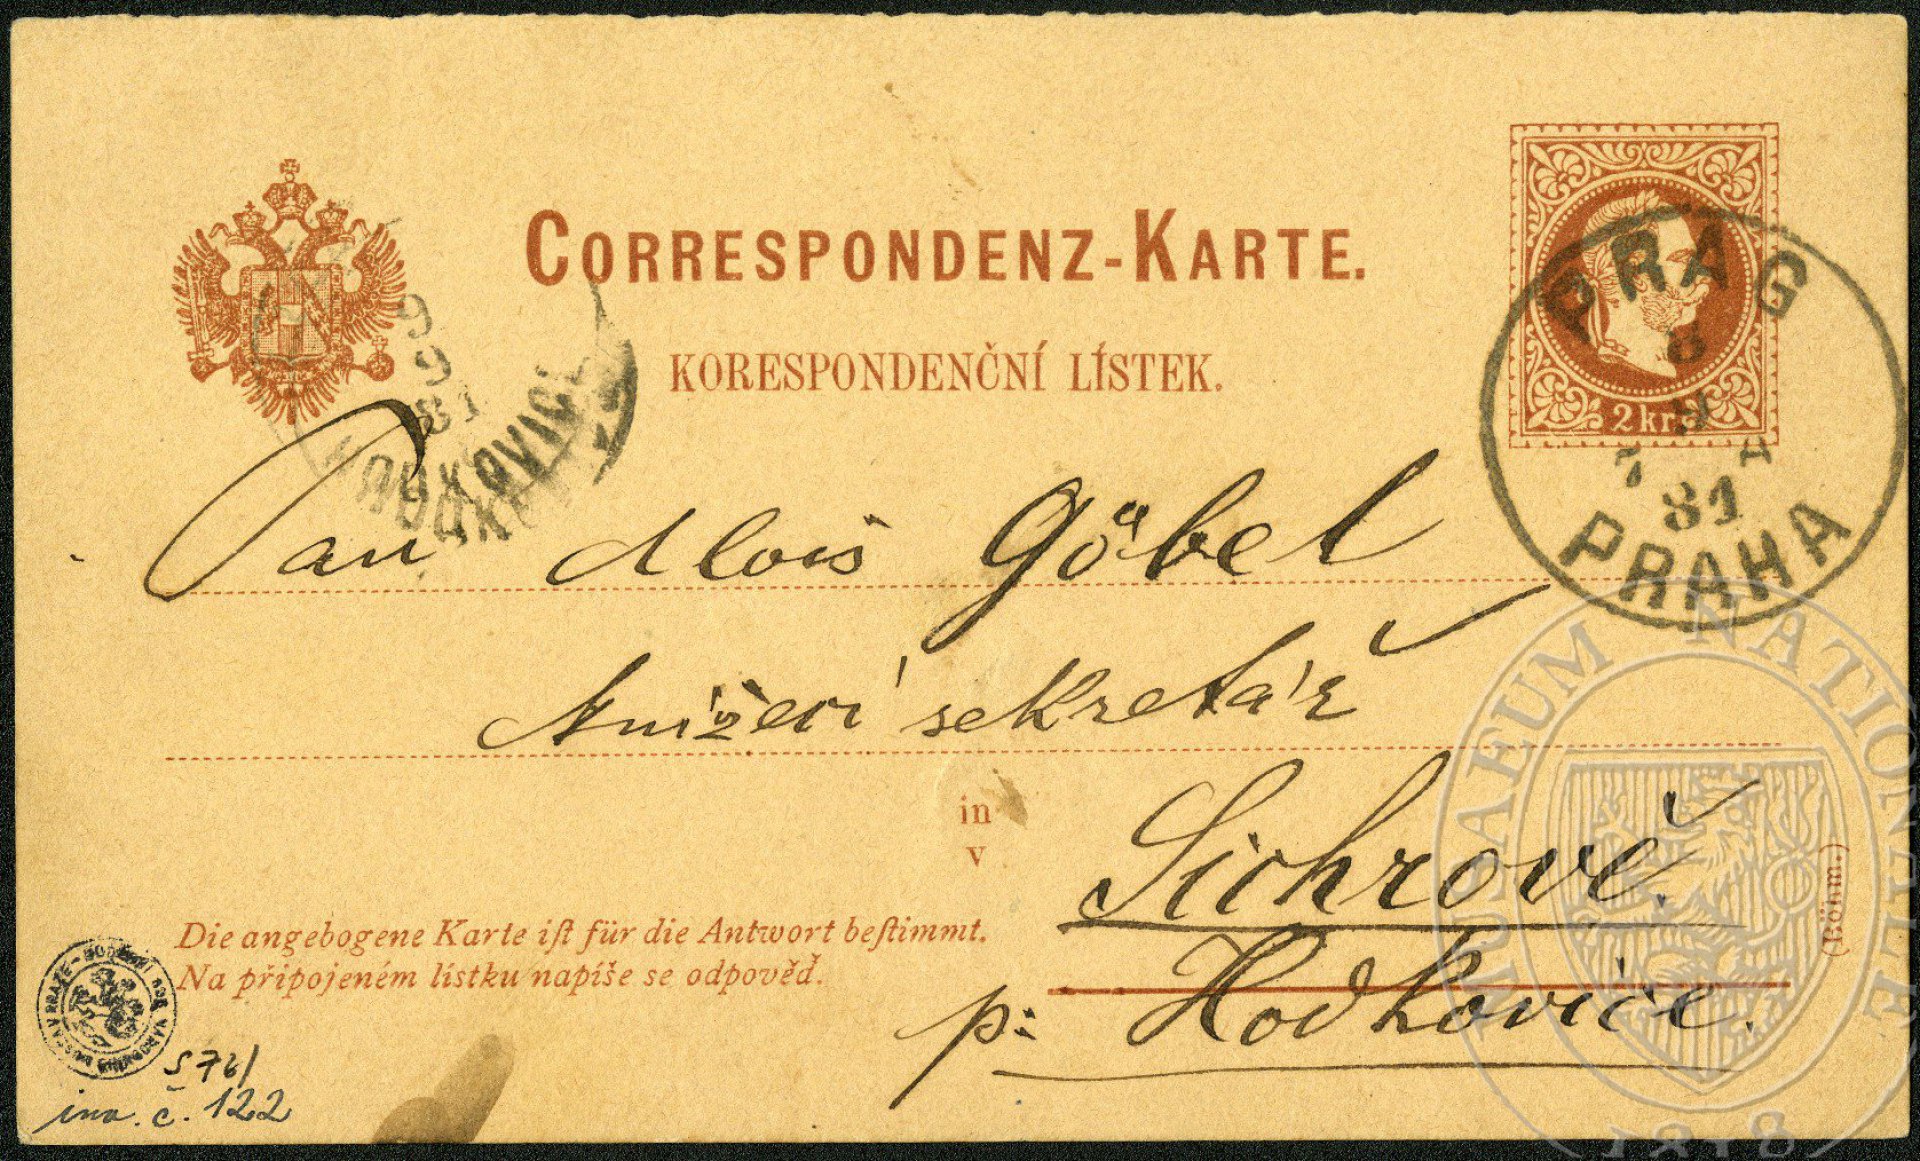 CORRESPONDENZ-KARTE.
KORESPONDENČNÍ LÍSTEK.
2 kr.
PRAG
8
9
81
7 A
PRAHA
9
9
81
HODKOVICE
Pan Alois Göbel
knížecí sekretář
in
v
Sichrově.
p: Hodkovice.
Die angebogene Karte ist für die Antwort bestimmt.
Na připojeném lístku napíše se odpověď.
(Böhm.)
S 76/
inv. č. 122
MUSAEUM NATIONALE
1818